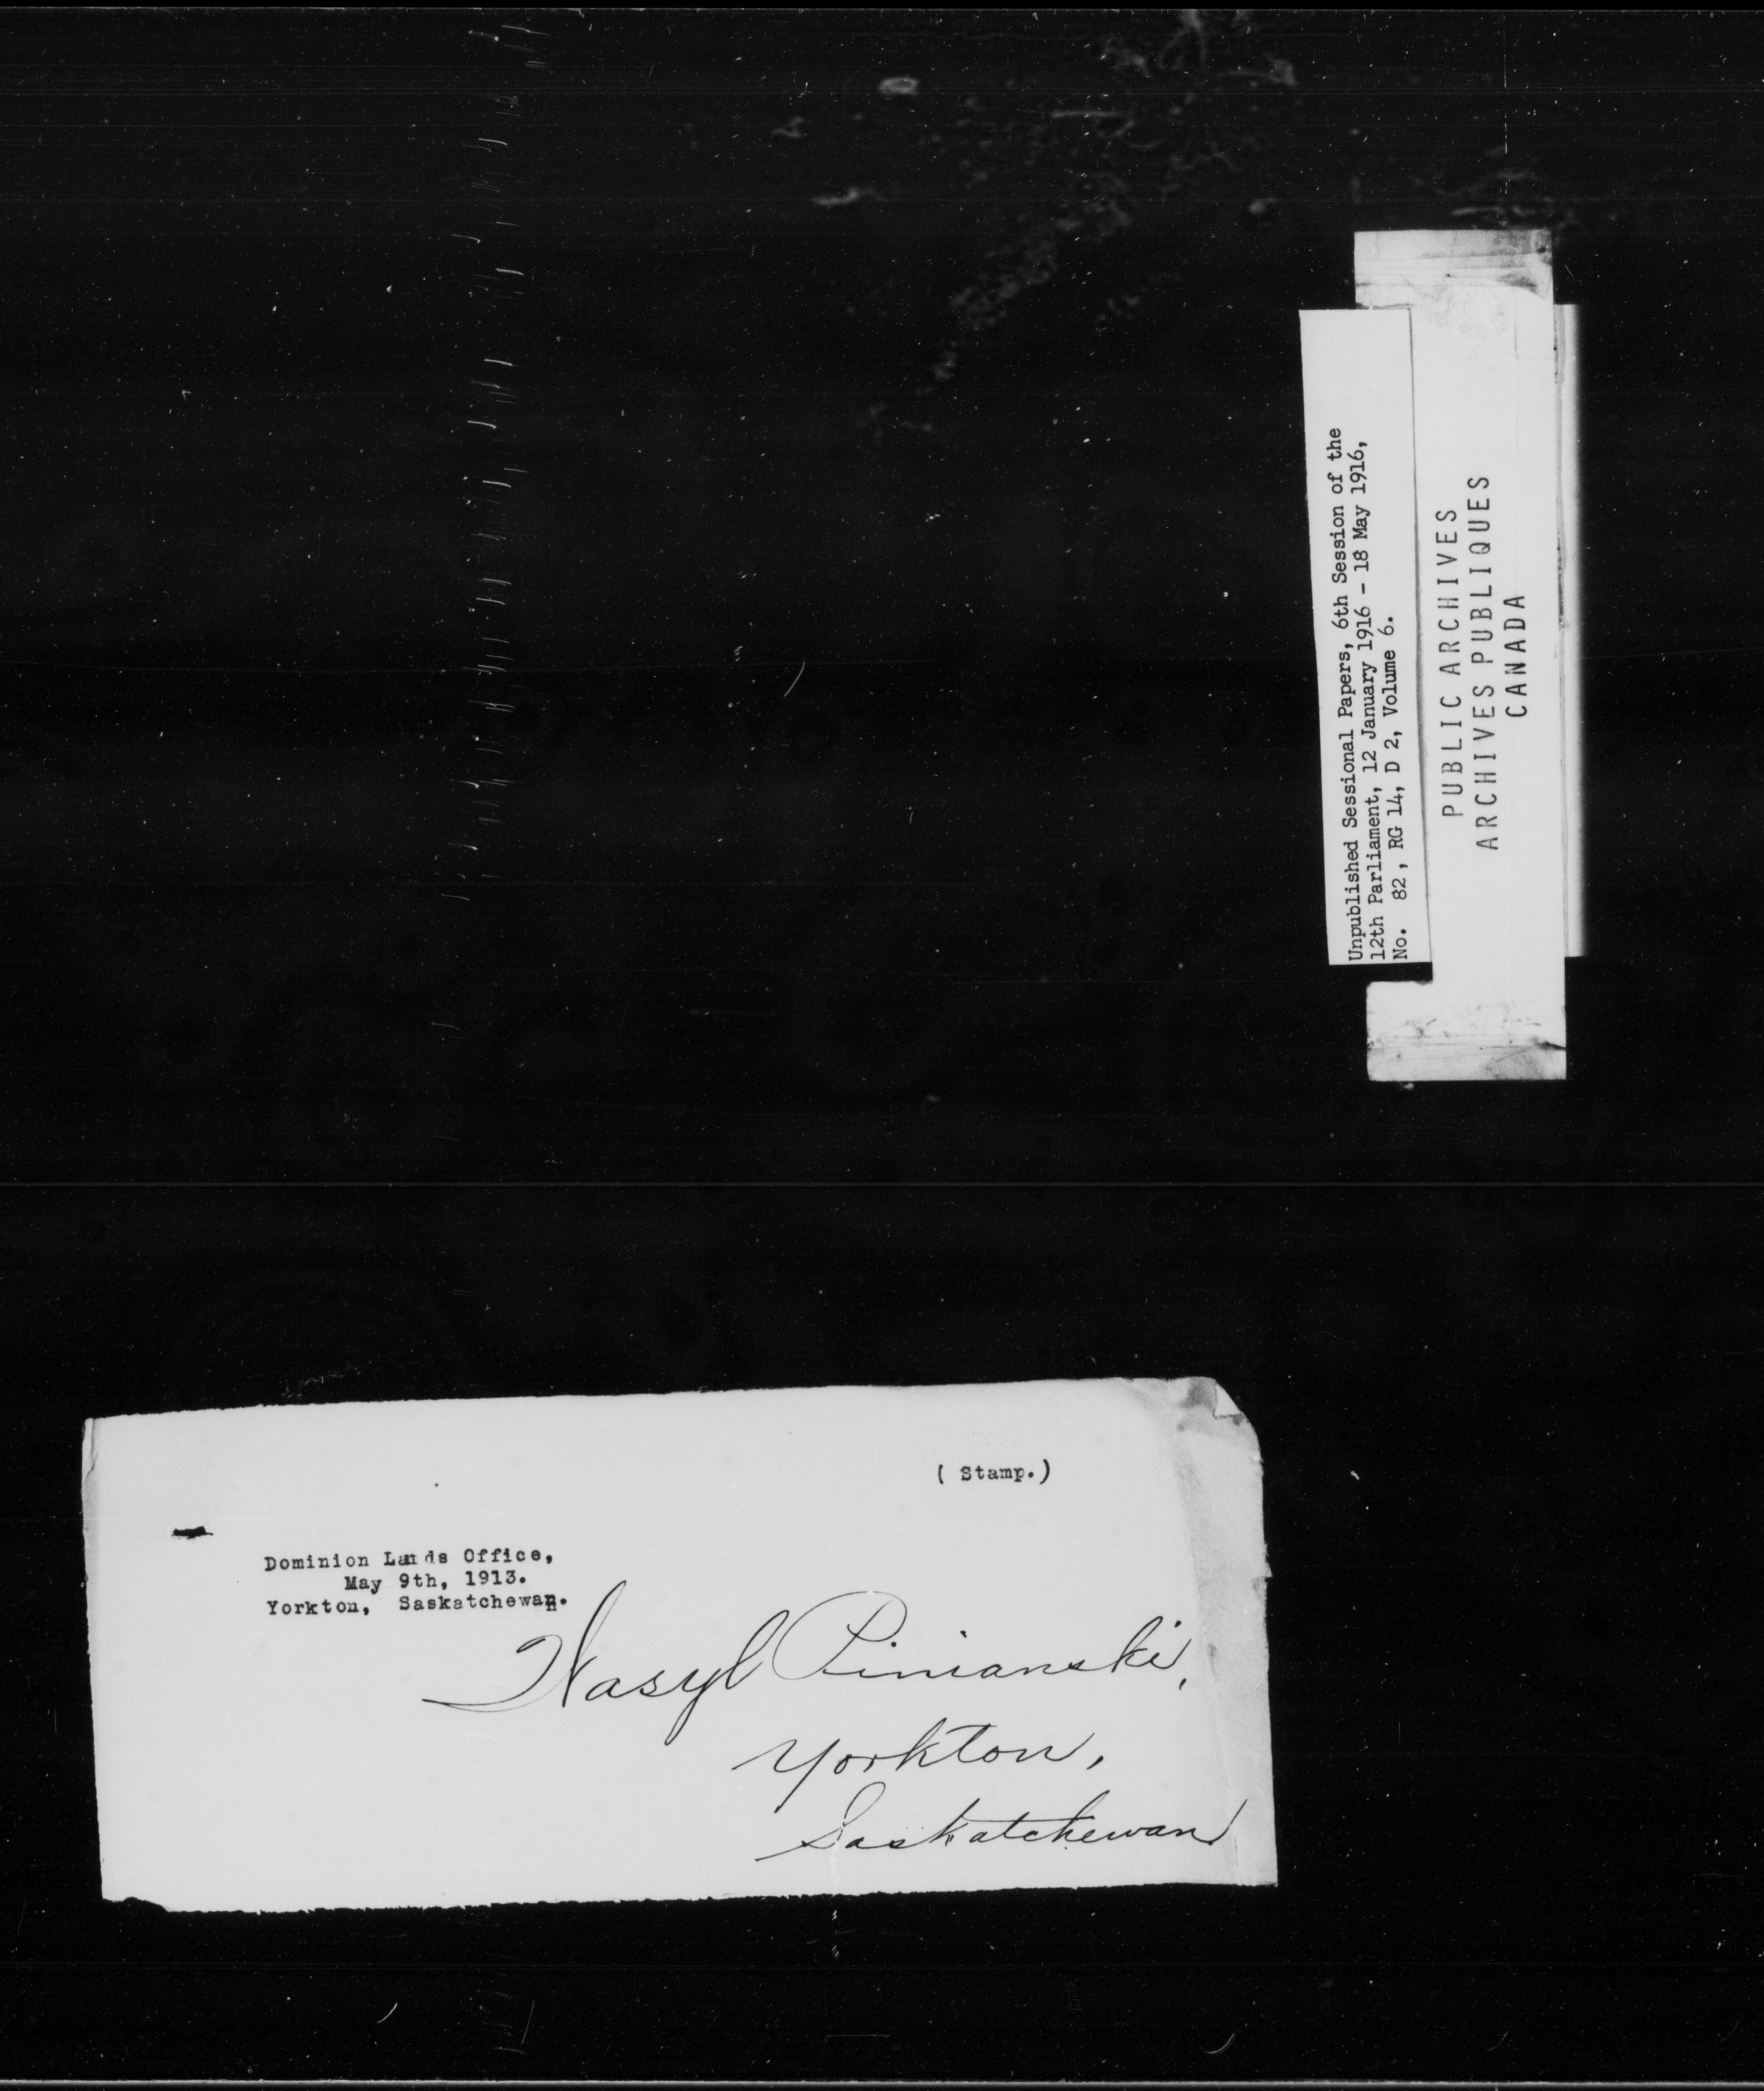 Unpublished Sessional Papers, 6th Session of the
12th Parliament, 12 January 1916 - 18 May 1916,
No. 82, RG 14, D 2, Volume 6.
PUBLIC ARCHIVES
ARCHIVES PUBLIQUES
CANADA
( Stamp.)
Dominion Lands Office,
May 9th, 1913.
Yorkton, Saskatchewan.
Wasyl Pinianski,
Yorkton,
Saskatchewan